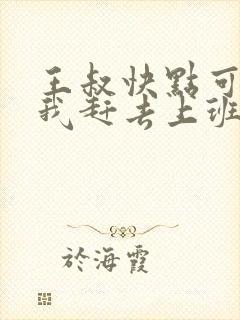 王叔快點可
我赶去上班
於海霞